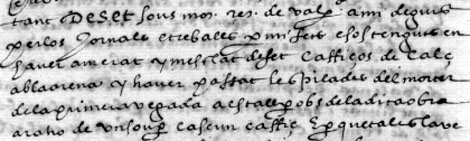 tant Deset sous mo. res. de valª ami deguts
per los Jornals e treballs per mi fets e sostenguts en
haver amerat y mesclat deset Caffiços de Calç
ab la arena y haver pastat les pilades del morter
de la primera vegada a estall per obs de la dita obra
a raho de un sou per cascun caffiç E per que tal es la ve